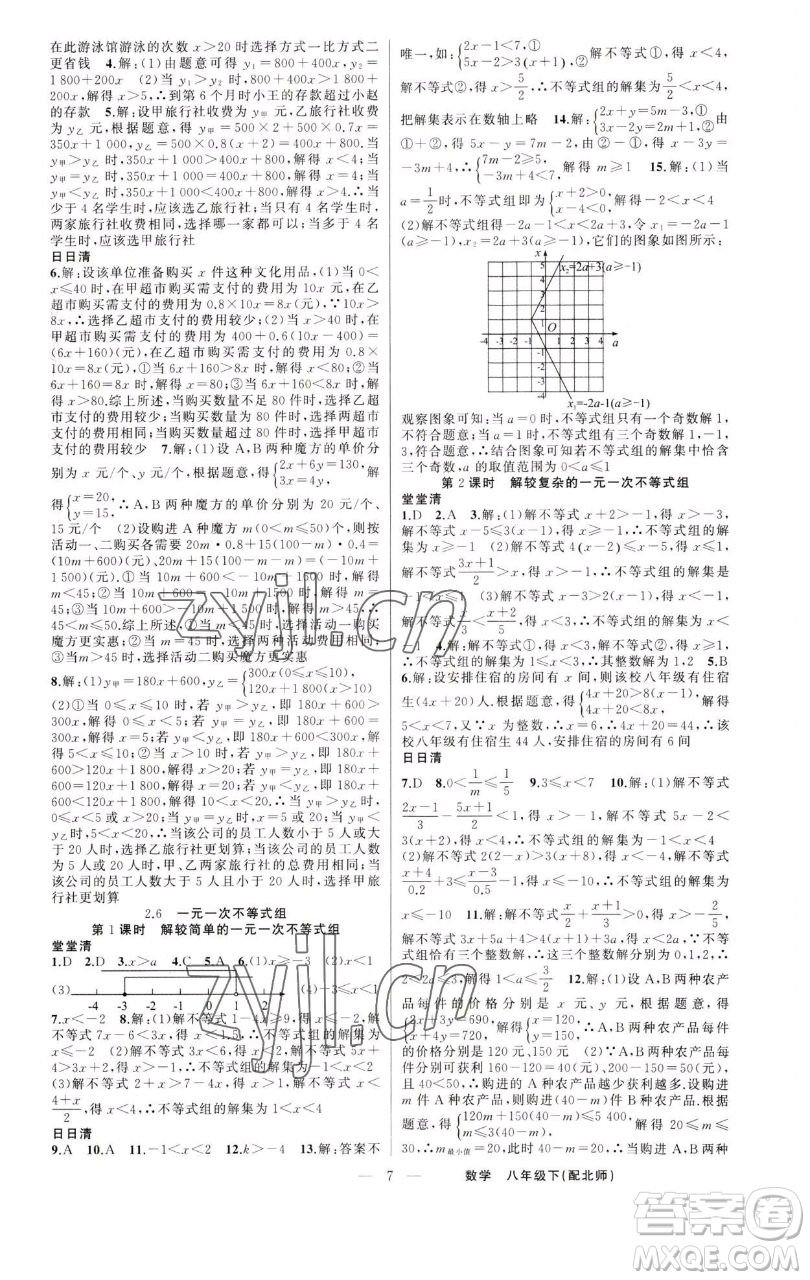 在此游泳馆游泳的次数 x>20 时选择方式一比方式二
更省钱 4.解:(1)由题意可得 y₁=800+400x,y₂=
1 800+200x (2)当 y₁>y₂ 时,800+400x>1 800+
200x,解得 x>5,∴到第 6 个月时小王的存款超过小赵
的存款 5.解:设甲旅行社收费为 y甲 元,乙旅行社收费
为 y乙 元,根据题意,得 y甲=500×2+500×0.7x=
350x+1 000,y乙=500×0.8(x+2)=400x+800,当
y甲>y乙 时,350x+1 000>400x+800,解得 x<4;当
y甲=y乙 时,350x+1 000=400x+800,解得 x=4;当
y甲<y乙 时,350x+1 000<400x+800,解得 x>4.当
少于 4 名学生时,应该选乙旅行社;当有 4 名学生时,
两家旅行社收费相同,选择哪一家都可以;当多于 4 名
学生时,应该选甲旅行社
日日清
6.解:设该单位准备购买 x 件这种文化用品,(1)当 0<
x≤40 时,在甲超市购买需支付的费用为 10x 元,在乙
超市购买需支付的费用为 0.8×10x=8x(元),∵10x>
8x,∴选择乙超市支付的费用较少;(2)当 x>40 时,在
甲超市购买需支付的费用为 400+0.6(10x-400)=
(6x+160)(元),在乙超市购买需支付的费用为 0.8×
10x=8x(元),①当 6x+160>8x 时,解得 x<80;②当
6x+160=8x 时,解得 x=80;③当 6x+160<8x 时,解
得 x>80.综上所述,当购买数量不足 80 件时,选择乙
超市支付的费用较少;当购买数量为 80 件时,选择两超
市支付的费用相同;当购买数量超过 80 件时,选择甲超
市支付的费用较少 7.解:(1)设 A,B 两种魔方的单价分
别为 x 元/个、y 元/个,根据题意,得{2x+6y=130, 3x=4y, 解得
{x=20, y=15. ∴A,B 两种魔方的单价分别为 20 元/个,
15 元/个 (2)设购进 A 种魔方 m(0<m≤50)个,则按
活动一、二购买各需 20m·0.8+15(100-m)·0.4=
(10m+600)(元),20m+15(100-m-m)=(-10m+
1 500)(元),①当 10m+600<-10m+1 500 时,解得
m<45;②当 10m+600=-10m+1 500 时,解得 m=
45;③当 10m+600>-10m+1 500 时,解得 m>45,∴
45<m≤50.综上所述,当 m<45 时,选择活动一购买
魔方更实惠;当 m=45 时,选择两种活动费用相同;
当 m>45 时,选择活动二购买魔方更实惠
8.解:(1)y甲=180x+600,y乙={300x(0≤x≤10), 120x+1 800(x>10)
(2)①当 0≤x≤10 时,若 y甲>y乙,即 180x+600>
300x,解得 x<5;若 y甲=y乙,即 180x+600=300x,解
得 x=5;若 y甲<y乙,即 180x+600<300x,解得 x>5;
②当 x>10 时,若 y甲>y乙,即 180x+
600>120x+1 800,解得 x>20;若 y甲=y乙,即 180x+
600=120x+1 800,解得 x=20;若 y甲<y乙,即 180x+
600<120x+1 800,解得 x<20.综上所述,当 x<5 或
x>20 时,y甲>y乙;当 x=5 或 20 时,y甲=y乙;当 5<x<20 时,y甲<
y乙,∴当该公司的员工人数小于 5 人或大
于 20 人时,选择乙旅行社更划算;当该公司的员工人数
为 5 人或 20 人时,甲、乙两家旅行社的总费用相同;当
该公司的员工人数大于 5 人且小于 20 人时,选择甲旅
行社更划算
2.6 一元一次不等式组
第 1 课时 解较简单的一元一次不等式组
堂堂清
1.D 2.D 3.x>a 4.C 5.A 6.(1)x≥-3 (2)x<1
(3) -4 -3 -2 -1 0 1 2
7.x<-2 8.解:(1)解不等式 1-4x≥9,得 x≤-2,解
不等式 7x-6<3x,得 x<1.5,∴不等式组的解集为
x≤-2 (2)解不等式 3x<6,得 x<2,解不等式
(3)解不等式 2+x>7-4x,得 x>1,解不等式 x<
4+x/2,得 x<4,∴不等式组的解集为 1<x<4
日日清
9.A 10.A 11.-1<x<2 12.k>-4 13.解:答案不
唯一,如:{2x-1<7,① 5x-2>3(x+1),② 解不等式①,得 x<4,
解不等式②,得 x>5/2,∴不等式组的解集为 5/2<x<4,
把解集表示在数轴上略 14.解:{2x+y=5m-3,① 3x-2y=2m+1,② 由①
×2+②,得 x-y=…
-3m+4,∴{7m-2≥5, -3m+4<1, 解得 m≥1 15.解:(1)当
a=1/2 时,不等式组即为{x+2>0, x-4<0, 解得-2<x<4
(2)解不等式组,得-2a-1<x<2a+3,令 x₁=-2a-1
(a≥-1),x₂=2a+3(a≥-1),它们的图象如图所示:
x
x₂=2a+3(a≥-1)
O
-4 -3 -2 -1 1 2 3 4 a
x₁=-2a-1(a≥-1)
观察图象可知:当 a=0 时,不等式组只有一个奇数解 1,
不符合题意;当 a>0 时,∴结合图象可知若不等式的解集中恰含
三个奇数,a 的取值范围为 0<a≤1
第 2 课时 解较复杂的一元一次不等式组
堂堂清
1.D 2.A 3.解:(1)解不等式 x+2>-1,得 x>-3,
解不等式 x-5≤3(x-1),得 x≥-1,∴不等式组的解
集是 x≥-1 (2)解不等式 4(x-2)≤x-5,得 x≤1,
解不等式 3x+1/2>x,得 x>-1,∴不等式组的解集是
-1 4.解:解不等式①,得 x>0,解不等式②,得 x<
3,∴不等式组的解集是 0<x<3,∴其整数解为 1,2 5.B
6.解:设安排住宿的房间有 x 间,则该校八年级有住宿
生(4x+20)人,根据题意,得{4x+20>8(x-1), 4x+20<8x, 解得
5<x<7,又∵x 为整数,∴x=6,∴4x+20=44,∴该
校八年级有住宿生 44 人,安排住宿的房间有 6 间
日日清
7.D 8.0<1/m≤1/5 9.3≤x<7 10.解:(1)解不等式
2x-1/3-5x+1/2<1,得 x>-1,解不等式 5x-2<
3(x+2),得 x<4,∴不等式组的解集为-1<x<4
(2)解不等式 2(2-x)>3(x+8),得 x<-4,解不等式
x+4/0.2+3≤x-3/0.5,得 x≤-10,∴不等式组的解集为
x≤-10 11.解:解不等式 x/2+x+1/3>0,得 x>-2/5,
解不等式 3x+5a+4>4(x+1)+3a,得 x<2a,∵不等
式组恰有三个整数解,∴这三个整数解分别为 0,1,2,∴
2<2a≤3,解得 1<a≤3/2 12.解:(1)设 A,B 两种农产
品每件的价格分别是 x 元、y 元,根据题意,得
{2x+3y=690, x+4y=720, 解得{x=120, y=150, ∴A,B 两种农产品每件
的价格分别是 120 元,150 元 (2)∵A,B 两种农产品每
件利润分别 160-120=40(元),200-150=50(元),
且 40<50,∴B 种农产品越多获利越多.设购买
m 件 A 种农产品,则购进(40-m)件 B 种农产品,根据
题意,得{120m+150(40-m)≤5 400, 解得 20≤m≤
30,∴m最小值=20,答:A 种农产品至少购买 20 件
7
数学 八年级下(配北师)
zyjl.cn
zyjl.cn
答案圈
MXQE.COM